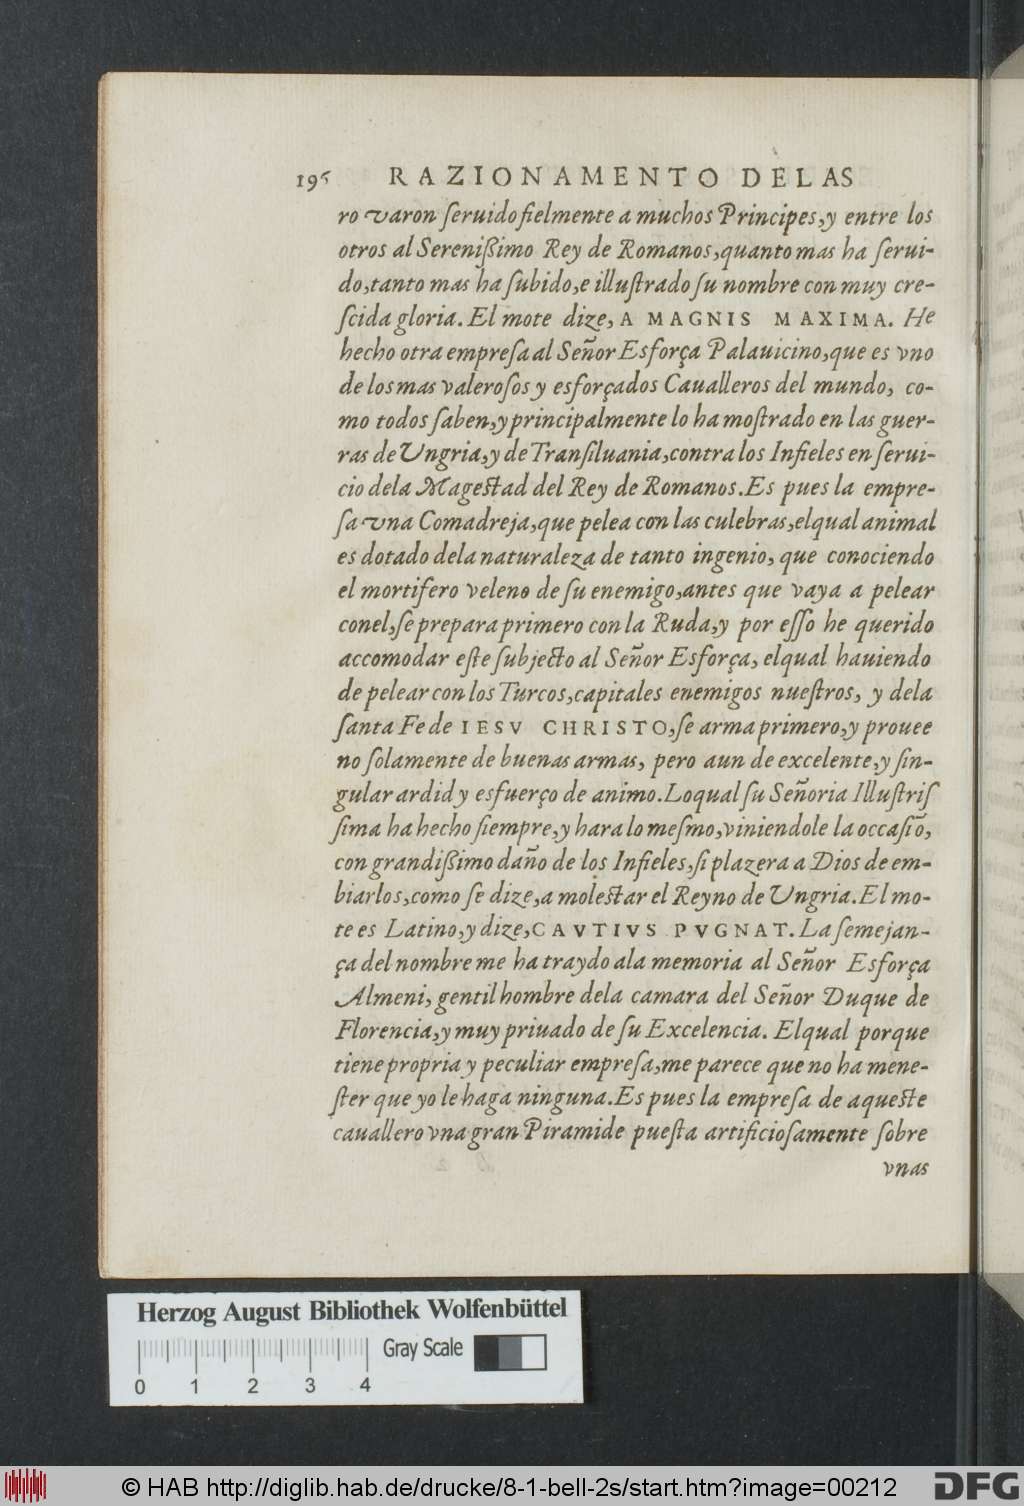 196 RAZIONAMENTO DELAS
ro varon ſeruido fielmente a muchos Principes, y entre los
otros al Sereniſsimo Rey de Romanos, quanto mas ha ſerui-
do, tanto mas ha ſubido, e illuſtrado ſu nombre con muy cre-
ſcida gloria. El mote dize, A MAGNIS MAXIMA. He
hecho otra empreſa al Señor Esforça Palauicino, que es vno
de los mas valeroſos y esforçados Caualleros del mundo, co-
mo todos ſaben, y principalmente lo ha moſtrado en las guer-
ras de Vngria, y de Tranſiluania, contra los Infieles en ſerui-
cio dela Mageſtad del Rey de Romanos. Es pues la empre-
ſa vna Comadreja, que pelea con las culebras, elqual animal
es dotado dela naturaleza de tanto ingenio, que conociendo
el mortifero veleno de ſu enemigo, antes que vaya a pelear
conel, ſe prepara primero con la Ruda, y por eſſo he querido
accomodar eſte ſubjecto al Señor Esforça, elqual hauiendo
de pelear con los Turcos, capitales enemigos nueſtros, y dela
ſanta Fe de IESV CHRISTO, ſe arma primero, y prouee
no ſolamente de buenas armas, pero aun de excelente, y ſin-
gular ardid y esfuerço de animo. Loqual ſu Señoria Illuſtriſ
ſima ha hecho ſiempre, y hara lo meſmo, viniendole la occaſiõ,
con grandiſsimo daño de los Infieles, ſi plazera a Dios de em-
biarlos, como ſe dize, a moleſtar el Reyno de Vngria. El mo-
te es Latino, y dize, CAVTIVS PVGNAT. La ſemejan-
ça del nombre me ha traydo ala memoria al Señor Esforça
Almeni, gentil hombre dela camara del Señor Duque de
Florencia, y muy priuado de ſu Excelencia. Elqual porque
tiene propria y peculiar empreſa, me parece que no ha mene-
ſter que yo le haga ninguna. Es pues la empreſa de aqueſte
cauallero vna gran Piramide pueſta artificioſamente ſobre
vnas
Herzog August Bibliothek Wolfenbüttel
Gray Scale
0 1 2 3 4
© HAB http://diglib.hab.de/drucke/8-1-bell-2s/start.htm?image=00212
DFG